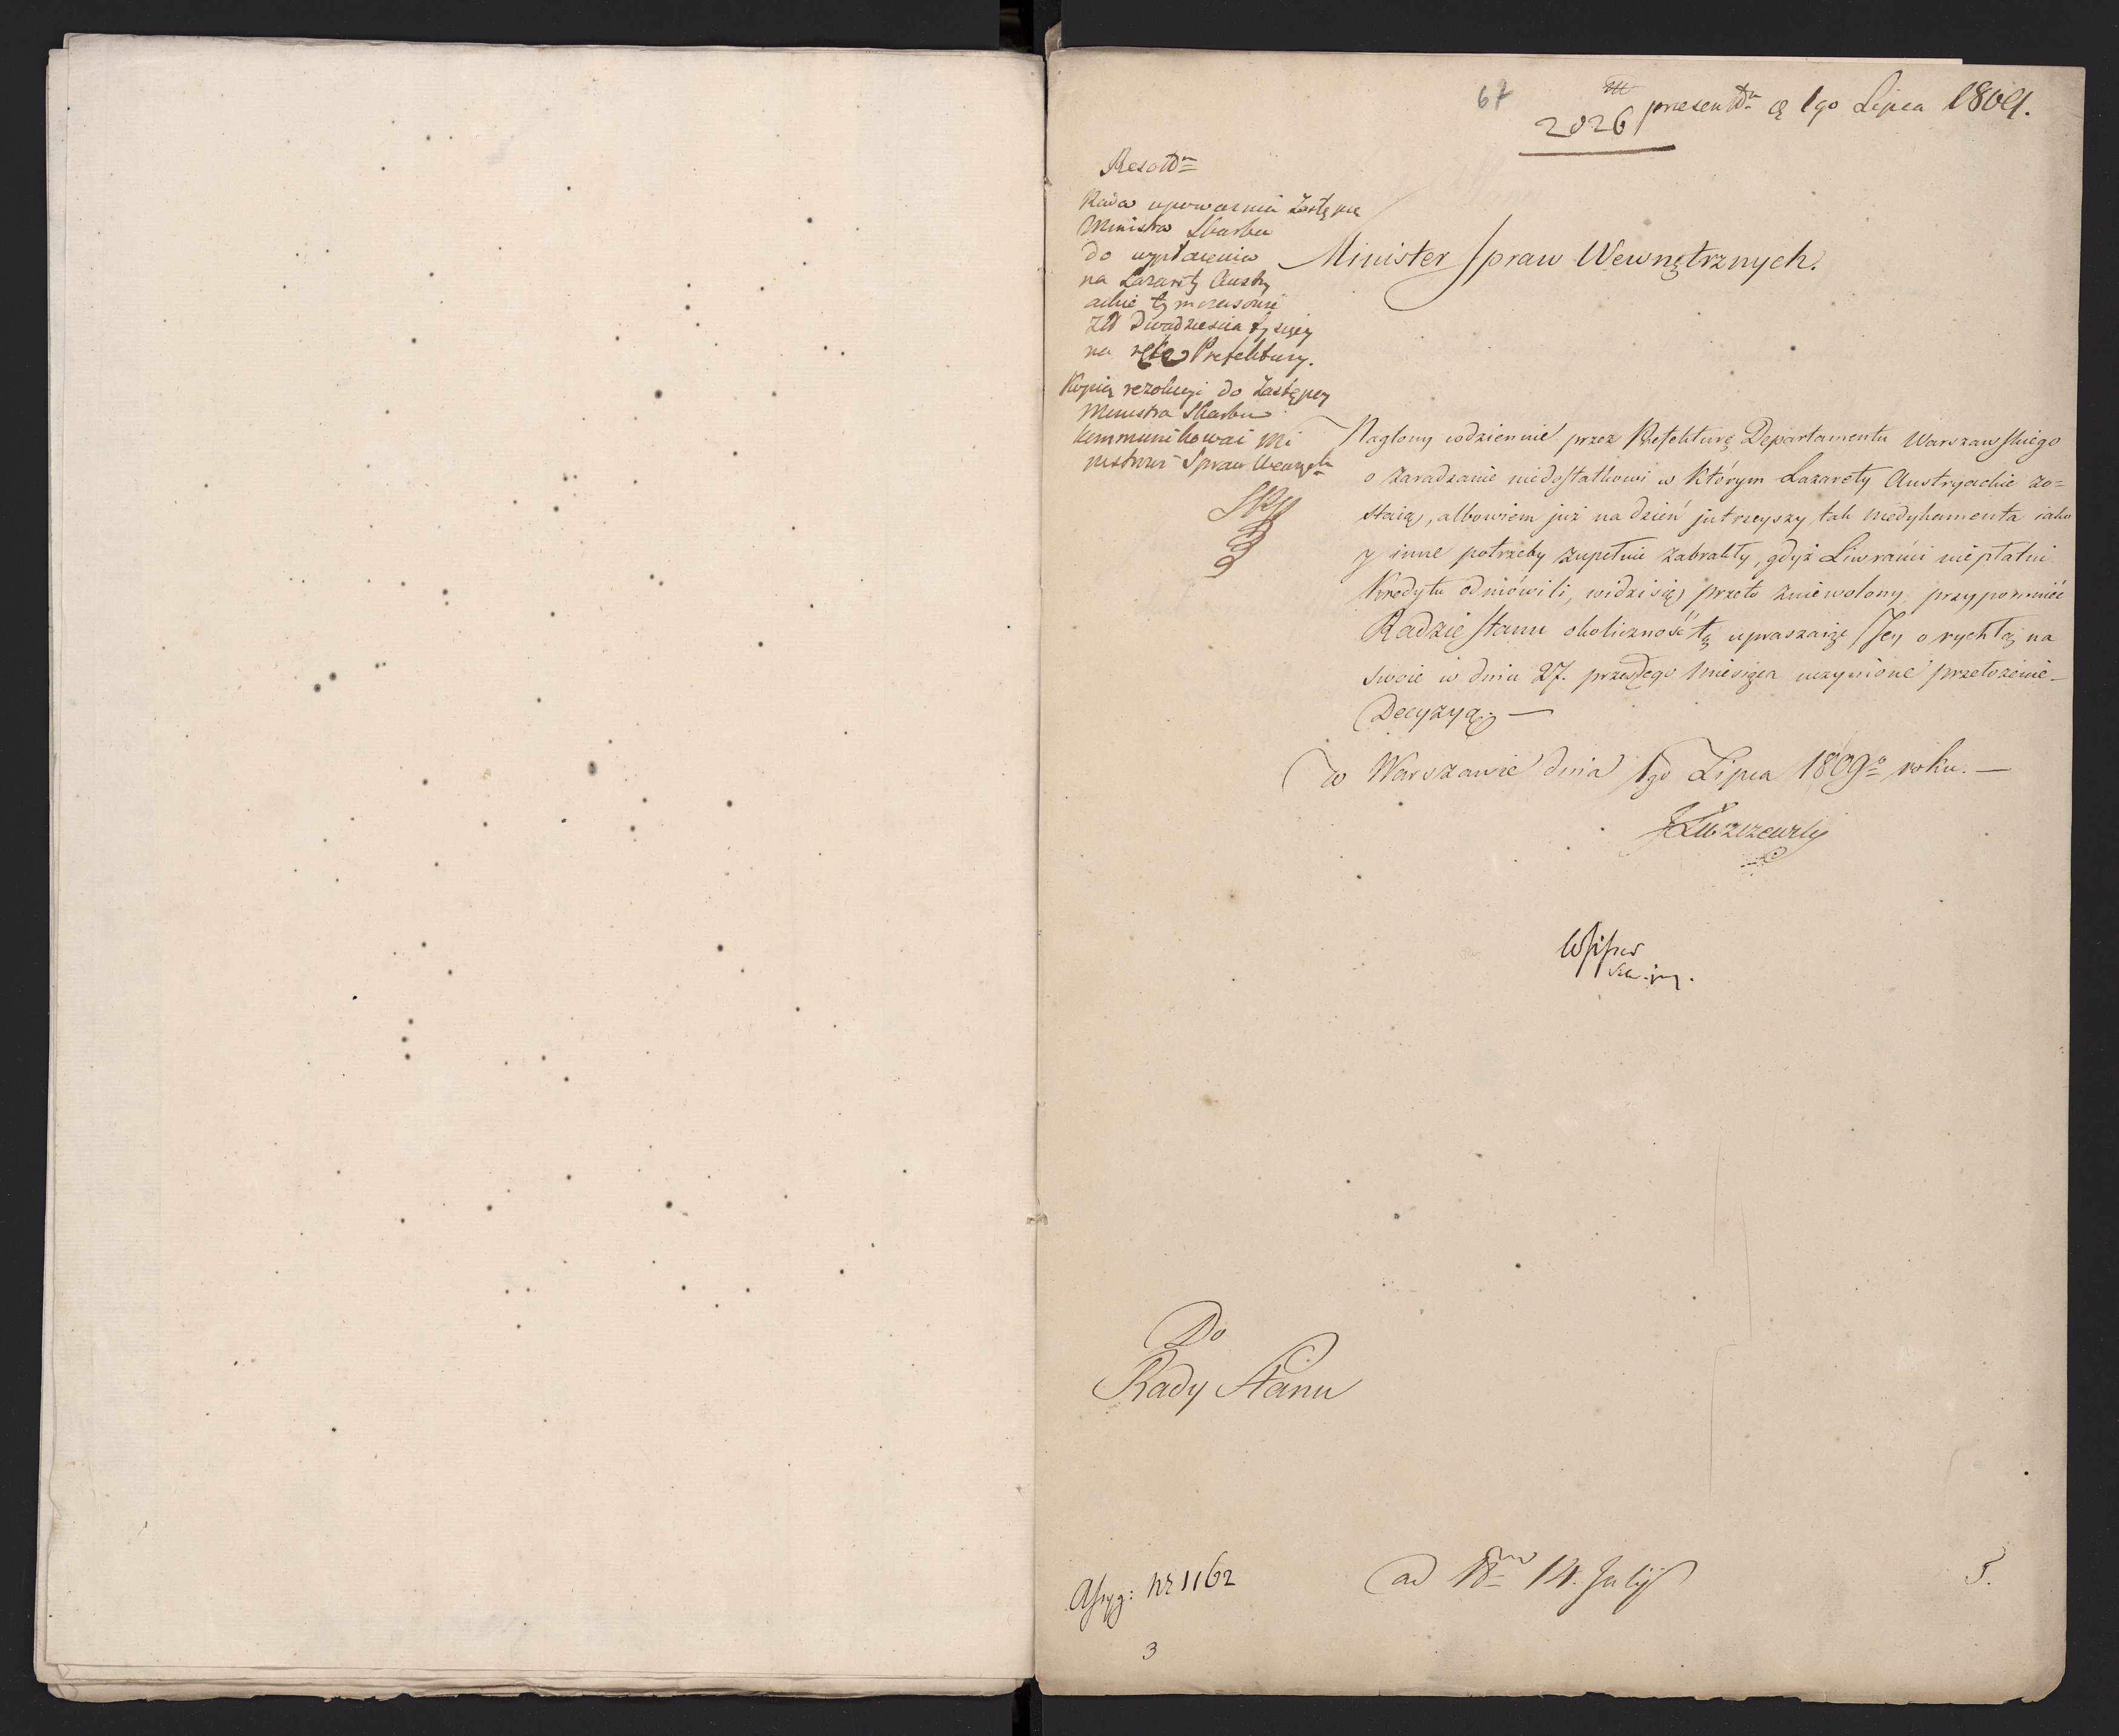 67
2026 presentdm d. 1go Lipca 1809.
Resoldm
Rada upoważnia Zastępcę
Ministra Skarbu
do wypłacenia
na Lazarety Austry
ackie tymczasowie
Zł dwadzieścia tysięcy
na ręce Prefektury.
Kopią rezolucyi do Zastępcy
Ministra Skarbu
kommunikować Mi
nistrowi Spraw Wewnętr.
Minister Spraw Wewnętrznych.
Naglony codziennie przez Prefekturę Departamentu Warszawskiego
o zaradzanie niedostatkowi w którym Lazarety Austryackie zo=
staią, albowiem już na dzień jutrzeyszy tak medykamenta iako
y inne potrzeby zupełnie zabrakły, gdyż Liwranci niepłatni
Kredytu odmówili, widzi się przeto zniewolony przypomnieć
Radzie Stanu okoliczność tę upraszaiąc Jey o rychłą na
swoie w dniu 27. przeszłego Miesiąca uczynione przełożenie
Decyzyą. —
w Warszawie dnia 1go Lipca 1809o roku. —
JŁuszczewski
Do
Rady Stanu
Assyg: nr 1162
ad 14. July
5.
3